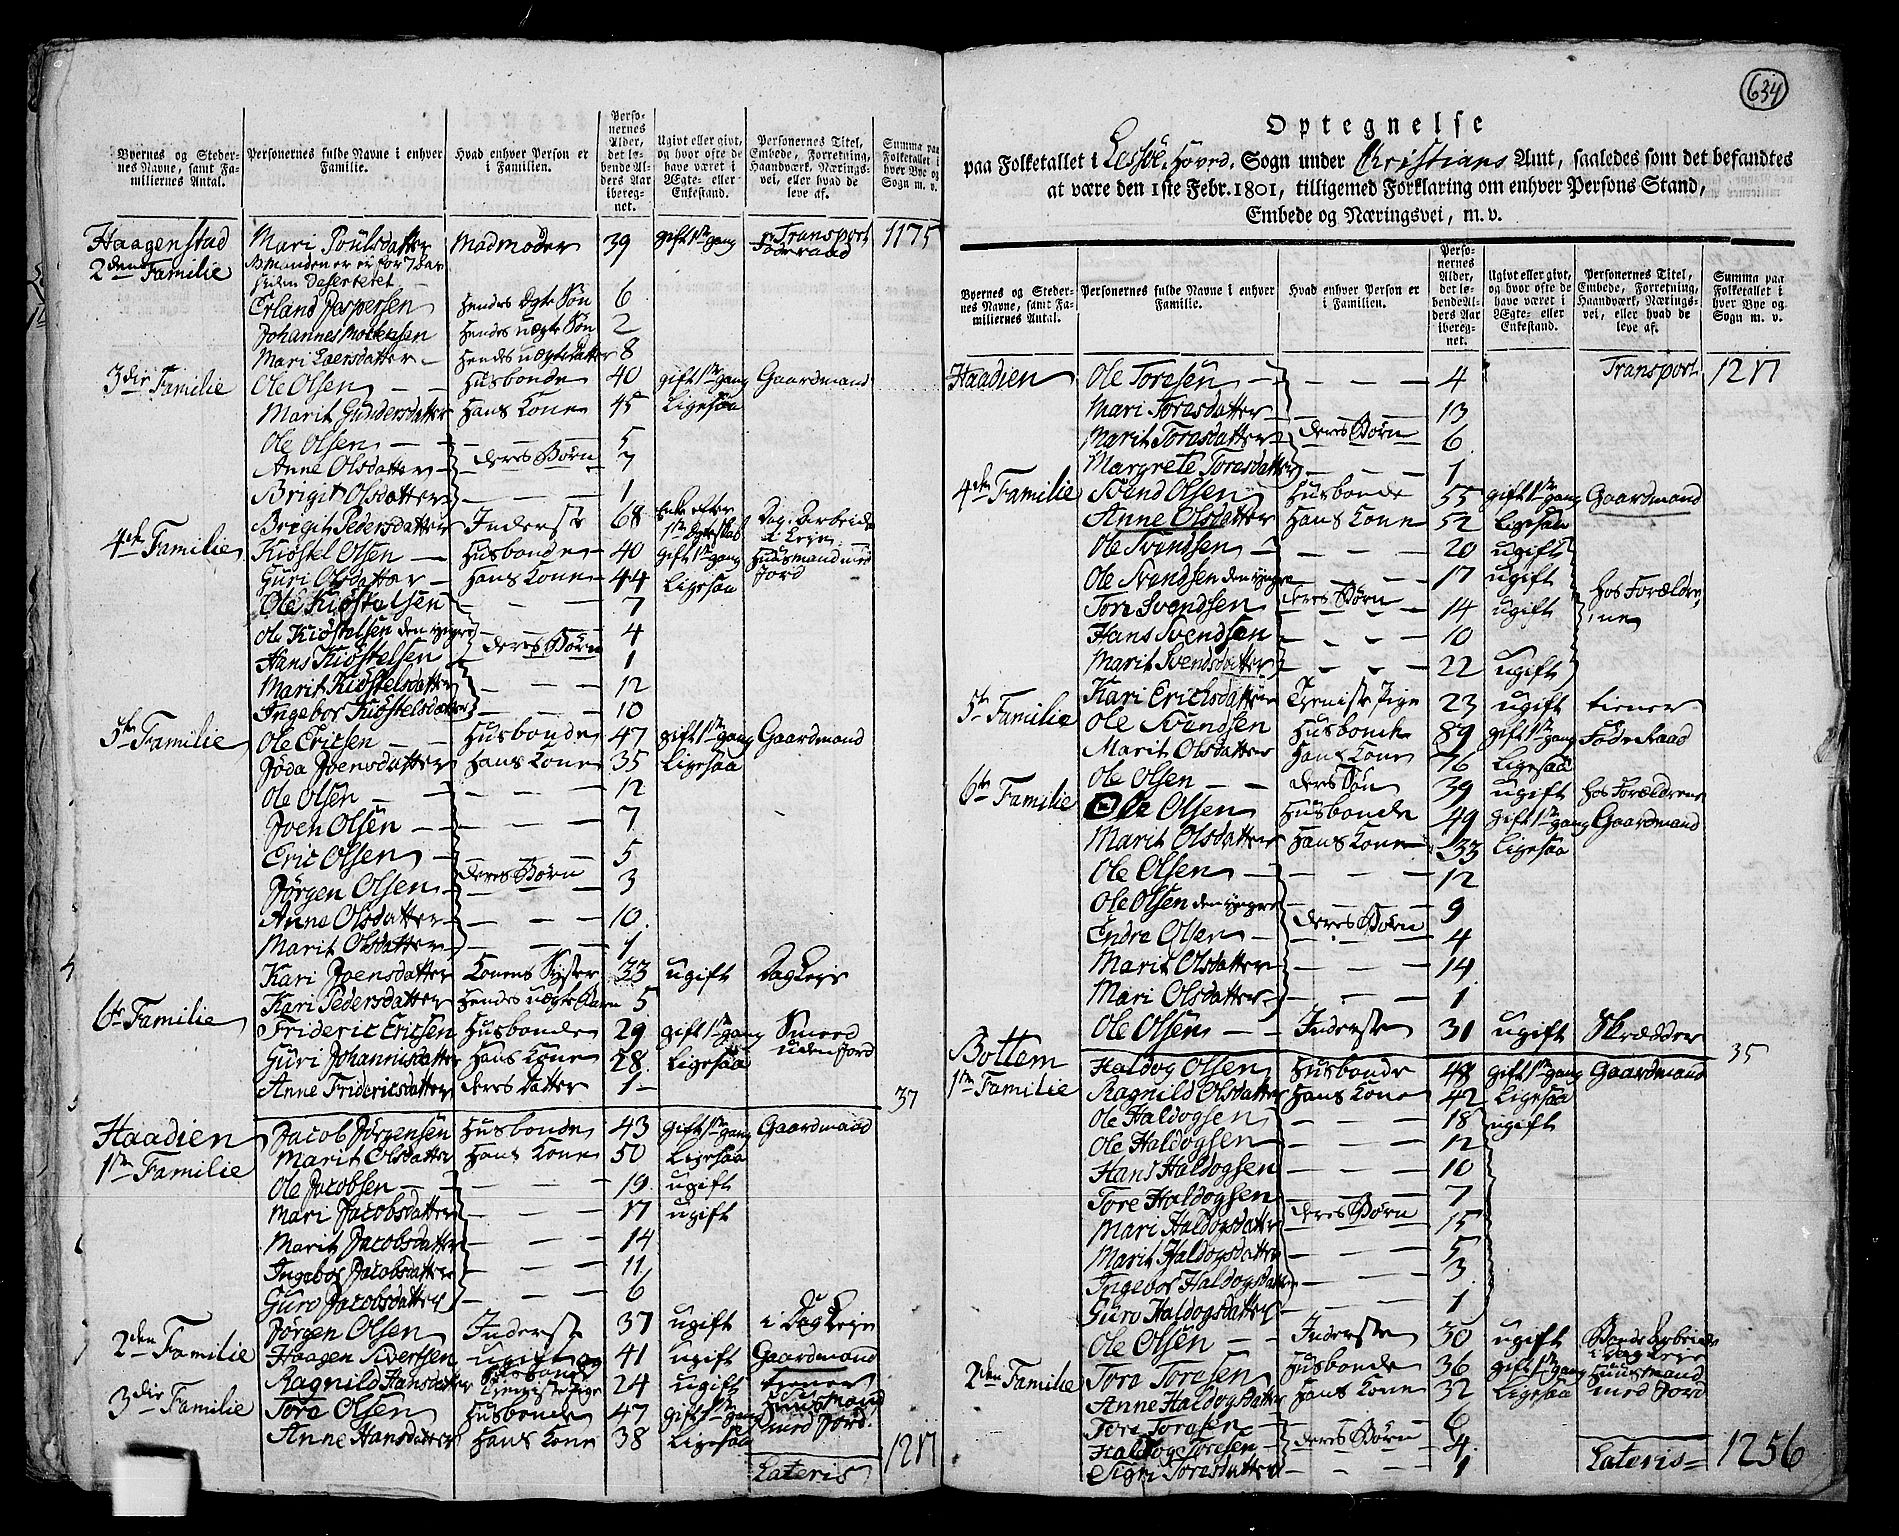 Byernes og Steder-
nes Navne, samt Fa-
miliernes Antal.
Personernes fulde Navne i enhver
Familie.
Hvad enhver Person er
i Familien.
Perso-
nernes
Alder,
det lø-
bende Al-
ders Aar
ibereg-
net.
Ugivt eller givt,
og hvor ofte de
have været i
Ægte- eller
Enkestand.
Personernes Titel,
Embede, Forretning,
Haandværk, Nærings-
vei, eller hvad de
leve af.
Summa paa
Folketallet i
hver Bye og
Sogn m. v.
Haagenstad Mari Poulsdatter Madmoder 39 gift 1ste gang Transport 1175
2den Familie
Erland Jespersen Hendes Ægte Søn 6
Johannes Hendes uægte Søn 2
Mari Laersdatter Hendes uægte datter 8
3die Familie Ole Olsen Husbonde 40 gift 1ste gang Gaardmand
Marit Gundersdatter Hans Kone 45 Ligesaa
Ole Olsen 5
Anne Olsdatter deres Børn 7
Brigit Olsdatter 1
Bregit Pedersdatter Inderste 68 Enke efter
4de Familie Kiøstel Olsen Husbonde 40 gift 1ste gang Huusmand med
Guri Olsdatter Hans Kone 44 Ligesaa Jord
Ole Kiøstelsen 7
Ole Kiøstelsen den yngre 4
Hans Kiøstelsen deres Børn 1
Marit Kiøstelsdatter 12
Ingebor Kiøstelsdatter 10
5te Familie Ole Ericsen Husbonde 47 gift 1ste gang Gaardmand
Jøda Joensdatter Hans Kone 35 Ligesaa
Ole Olsen 12
Joen Olsen 7
Eric Olsen 5
Jørgen Olsen deres Børn 3
Anne Olsdatter 10
Marit Olsdatter 1
Kari Joensdatter Konens Syster 33 ugift Dag Leje
Kari Pedersdatter Hendes uægte Barn 5
6te Familie Frideric Ericsen Husbonde 29 gift 1ste gang Smed
Guri Johannisdatter Hans Kone 28 Ligesaa uden Jord
Anne Fridericsdatter deres datter 1
37
Haadien Jacob Jørgensen Husbonde 43 gift 1ste gang Gaardmand
1ste Familie Marit Olsdatter Hans Kone 50 Ligesaa
Ole Jacobsen 19 ugift
Mari Jacobsdatter 17 ugift
Marit Jacobsdatter 14
Ingebor Jacobsdatter 11
Guro Jacobsdatter 6
Jørgen Olsen Inderste 37 ugift i Dag Leje
2den Familie Haagen Sivertsen ugift og Husbonde 41 ugift Gaardmand
Ragnild Hansdatter Tienistepige 24 ugift tiener
3die Familie Tore Olsen Husbonde 47 gift 1ste gang Huusmand
Anne Hansdatter Hans Kone 38 Ligesaa med Jord
Lateris 1217
634
Optegnelse
paa Folketallet i Lessøe Hoved Sogn under Christians Amt, saaledes som det befandtes
at være den 1ste Febr. 1801, tilligemed Forklaring om enhver Persons Stand,
Embede og Næringsvei, m. v.
Byernes og Steder-
nes Navne, samt Fa-
miliernes Antal.
Personernes fulde Navne i enhver
Familie.
Hvad enhver Person er
i Familien.
Perso-
nernes
Alder,
det lø-
bende Al-
ders Aar
ibereg-
net.
Ugivt eller givt,
og hvor ofte de
have været i
Ægte- eller
Enkestand.
Personernes Titel,
Embede, Forretning,
Haandværk, Nærings-
vei, eller hvad de
leve af.
Summa paa
Folketallet i
hver Bye og
Sogn m. v.
Haadien Ole Toresen 4 Transport 1217
Mari Toresdatter 13
Marit Toresdatter deres Børn 6
Margrete Toresdatter 1
4de Familie Svend Olsen Husbonde 55 gift 1ste gang Gaardmand
Anne Olsdatter Hans Kone 52 Ligesaa
Ole Svendsen 20 ugift
Ole Svendsen den yngre 17 ugift
Tore Svendsen deres Børn 14 ugift hos Forældre-
Hans Svendsen 10 ne
Marit Svendsdatter 22 ugift
Kari Erichsdatter Tieniste Pige 23 ugift tiener
5te Familie Ole Svendsen Husbonde 89 gift 1ste gang Føde Raad
Marit Olsdatter Hans Kone 76 Ligesaa
Ole Olsen deres Søn 39 ugift hos Forældrene
6te Familie Ole Olsen Husbonde 49 gift 1ste gang Gaardmand
Marit Olsdatter Hans Kone 33 Ligesaa
Ole Olsen 12
Ole Olsen den yngre 9
Endre Olsen deres Børn 4
Marit Olsdatter 14
Mari Olsdatter 1
Ole Olsen Inderste 31 ugift Skrædder
35
Bottem Haldog Olsen Husbonde 48 gift 1ste gang Gaardmand
1ste Familie Ragnild Olsdatter Hans Kone 42 Ligesaa
Ole Haldogsen 18 ugift
Ole Haldogsen 12
Hans Haldogsen 10
Tore Haldogsen 7
Mari Haldogsdatter deres Børn 15
Marit Haldogsdatter 5
Ingebor Haldogsdatter 3
Guro Haldogsdatter 1
Ole Olsen Inderste 30 ugift Bonde Arbeide
i Dag Leje
2den Familie Tore Toresen Husbonde 36 gift 1ste gang Huusmand
Anne Haldogsdatter Hans Kone 32 Ligesaa med Jord
Tore Toresen 6
Haldog Toresen deres Børn 4
Sigri Toresdatter 1
Lateris 1256